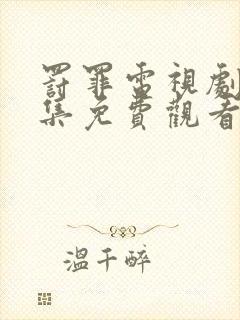 罰罪電視劇
集免費觀看
溫千醉